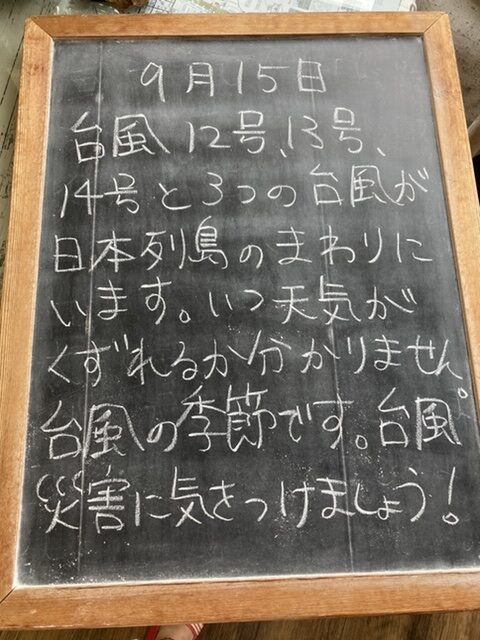 9月15日
台風12号、13号、
14号と3つの台風が
日本列島のまわりに
います。いつ天気が
くずれるか分かりません。
台風の季節です。台風
災害に気をつけましょう!